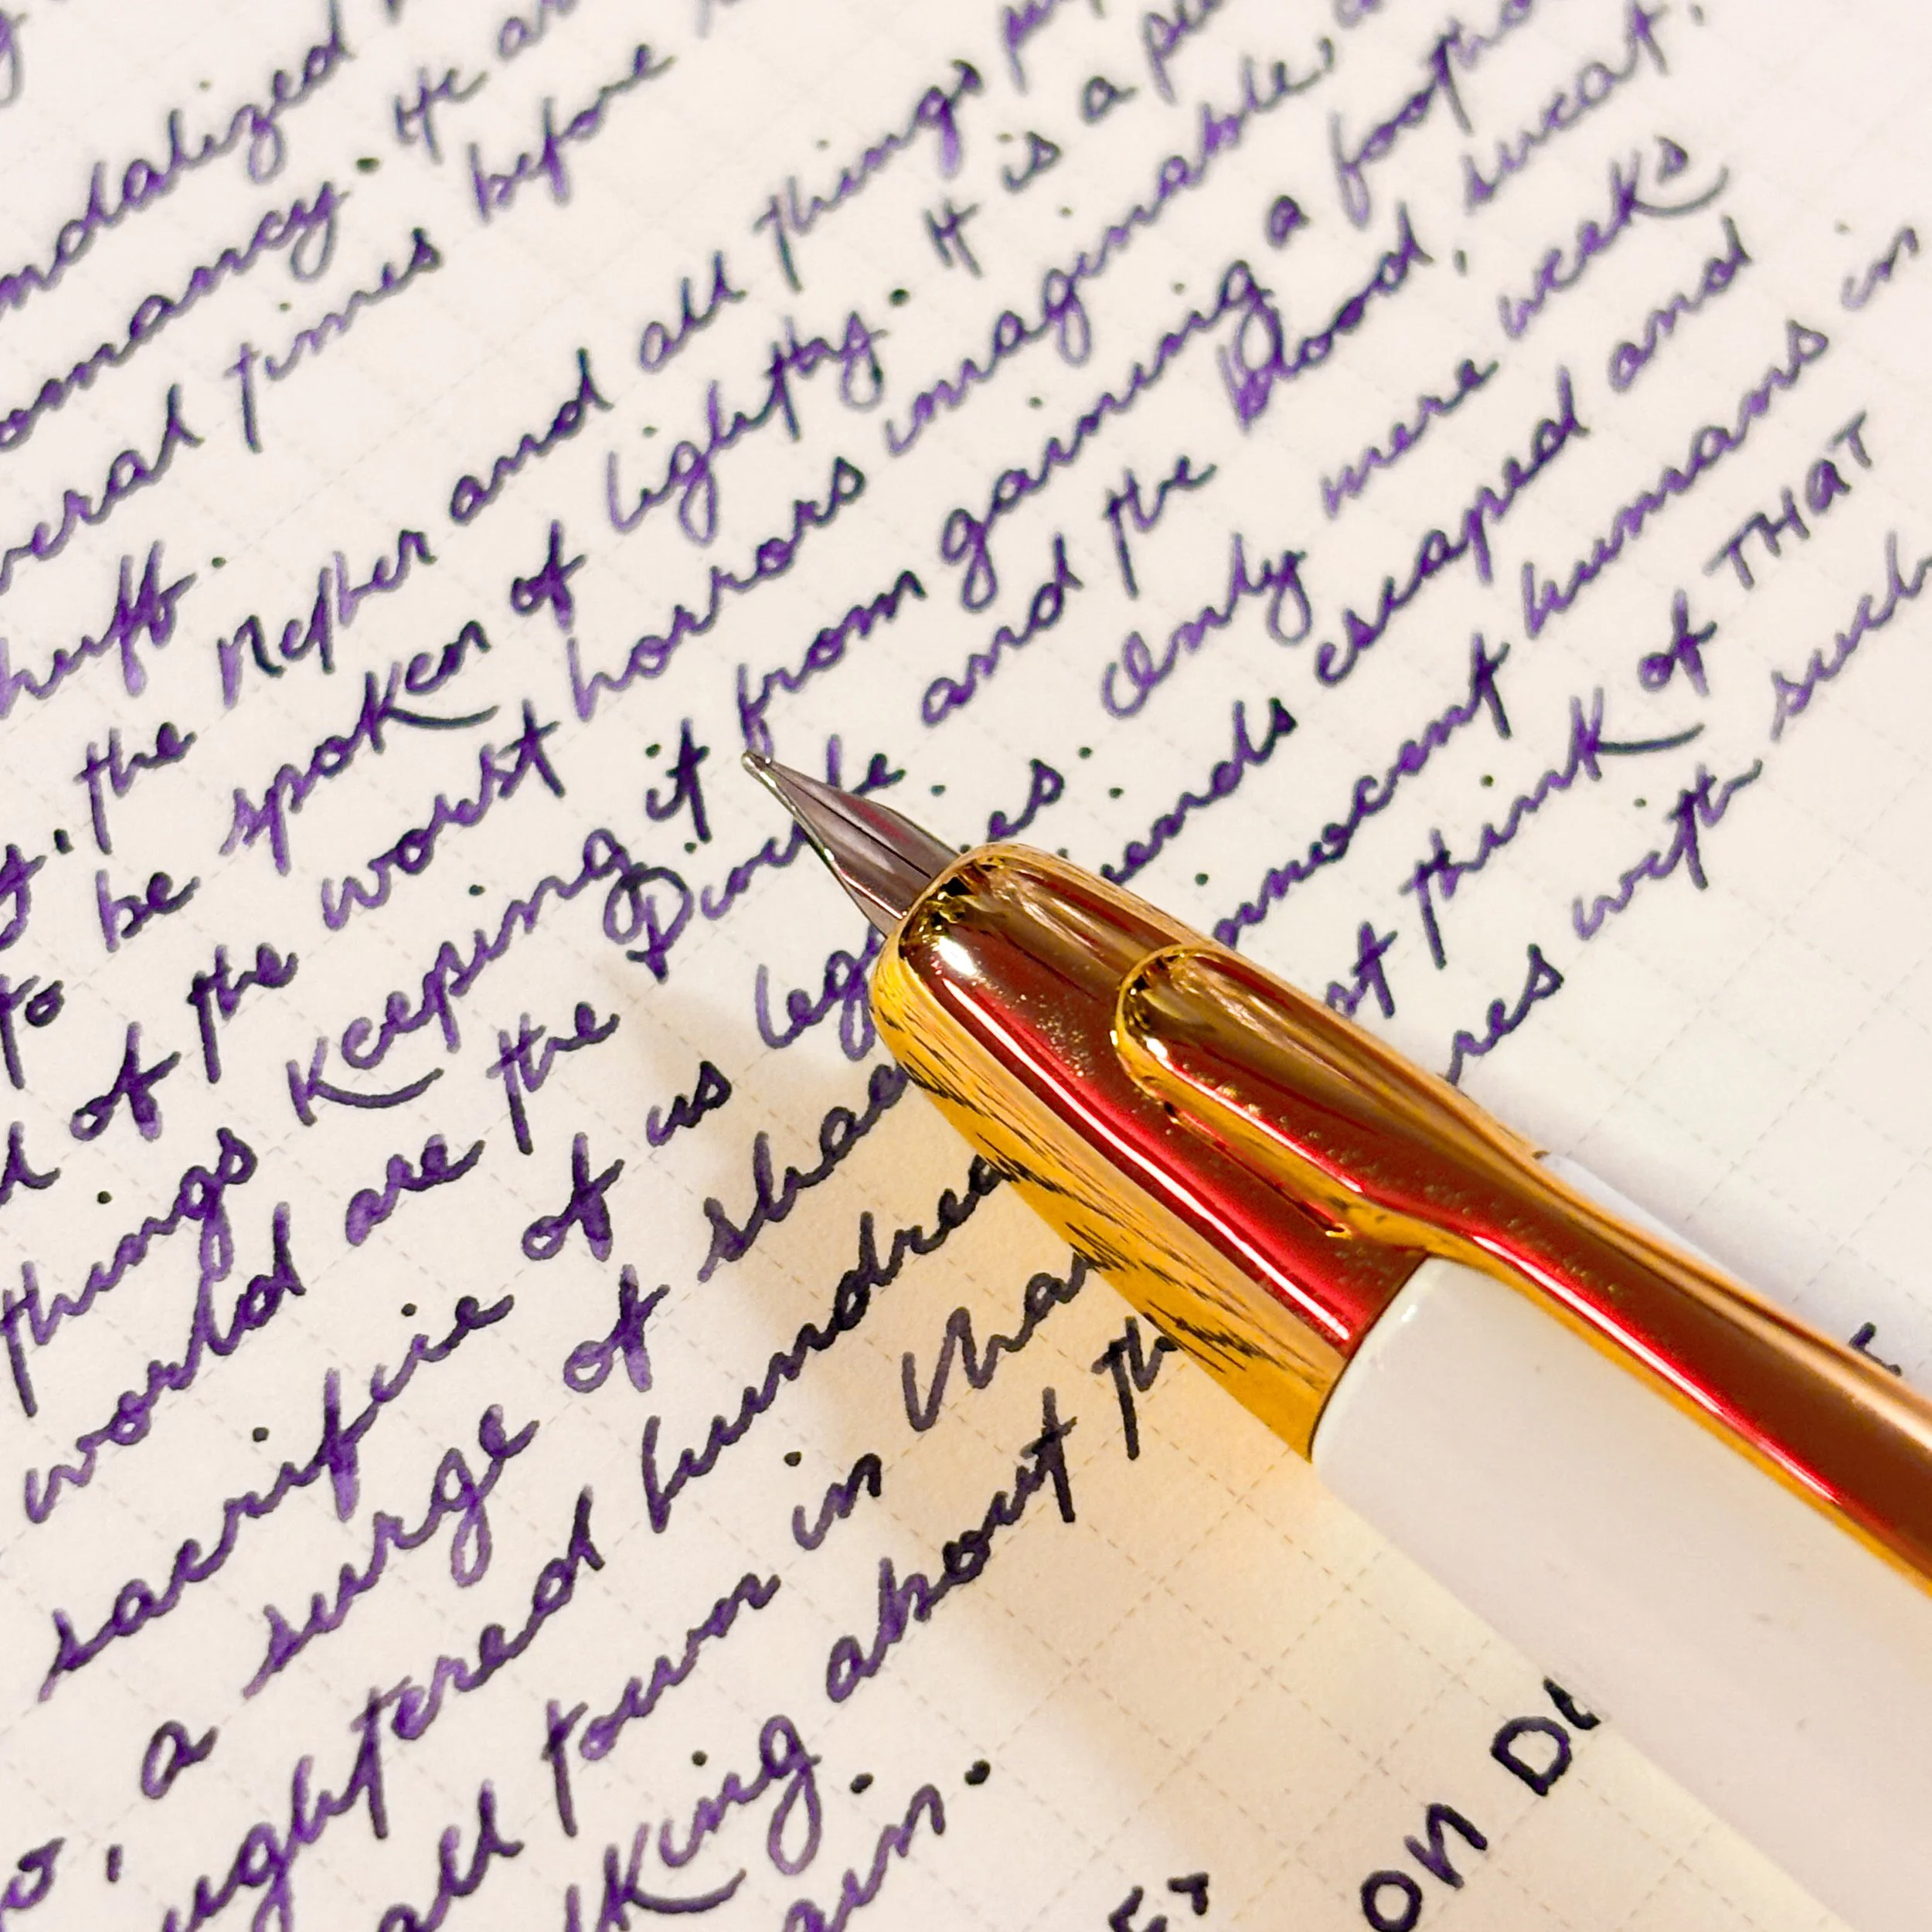 ndalized
omancy. He
veral times before
huff.
the Nether and all things
to be spoken of lightly. It is a
of the worst horrors imaginable,
things Keeping it from gaining a footho
world are the and the blood, sweat,
sacrifice of us Only mere weeks
a surge of escaped and
ughtered hundred innocent humans in
all town in think of THAT
lking about with such
ain.
ON